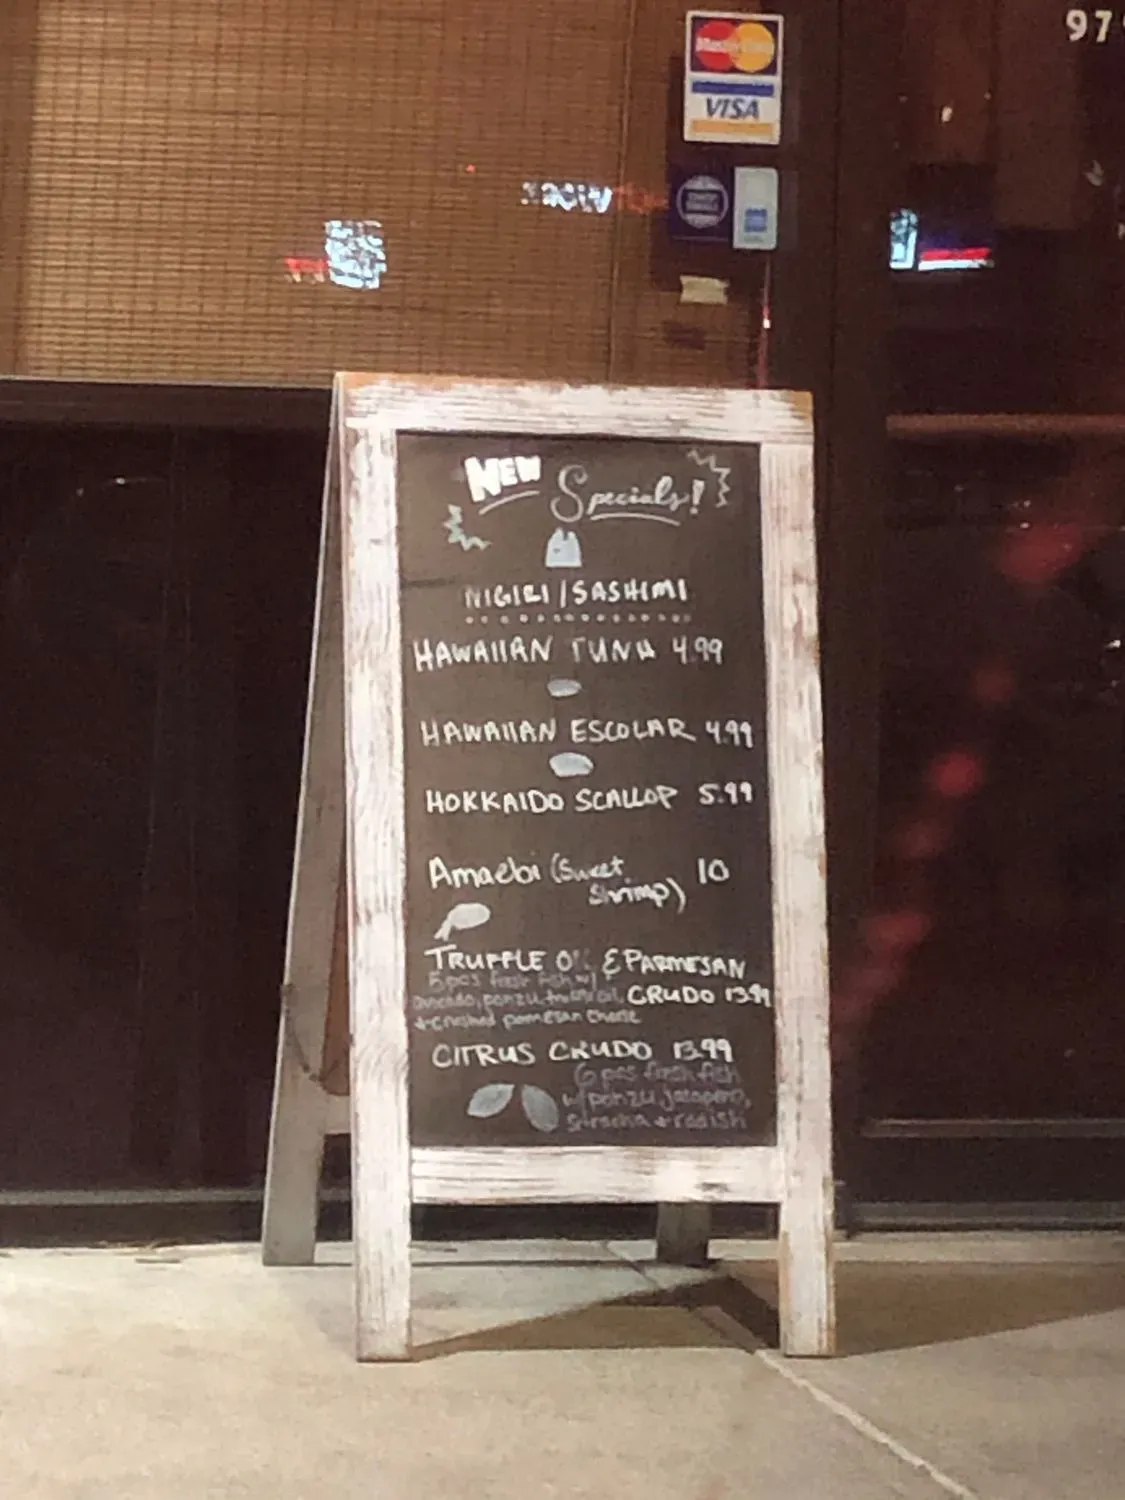 97
MasterCard
VISA
NEW
Specials!
NIGIRI/SASHIMI
HAWAIIAN TUNA 4.99
HAWAIIAN ESCOLAR 4.99
HOKKAIDO SCALLOP 5.99
Amaebi (Sweet 10
Shrimp)
TRUFFLE OIL & PARMESAN
5 pcs fresh fish w/
avocado, ponzu, truffle oil, CRUDO 13.99
+ crushed parmesan cheese
CITRUS CRUDO 13.99
6 pcs fresh fish
w/ ponzu, jalapeno,
sriracha + radish